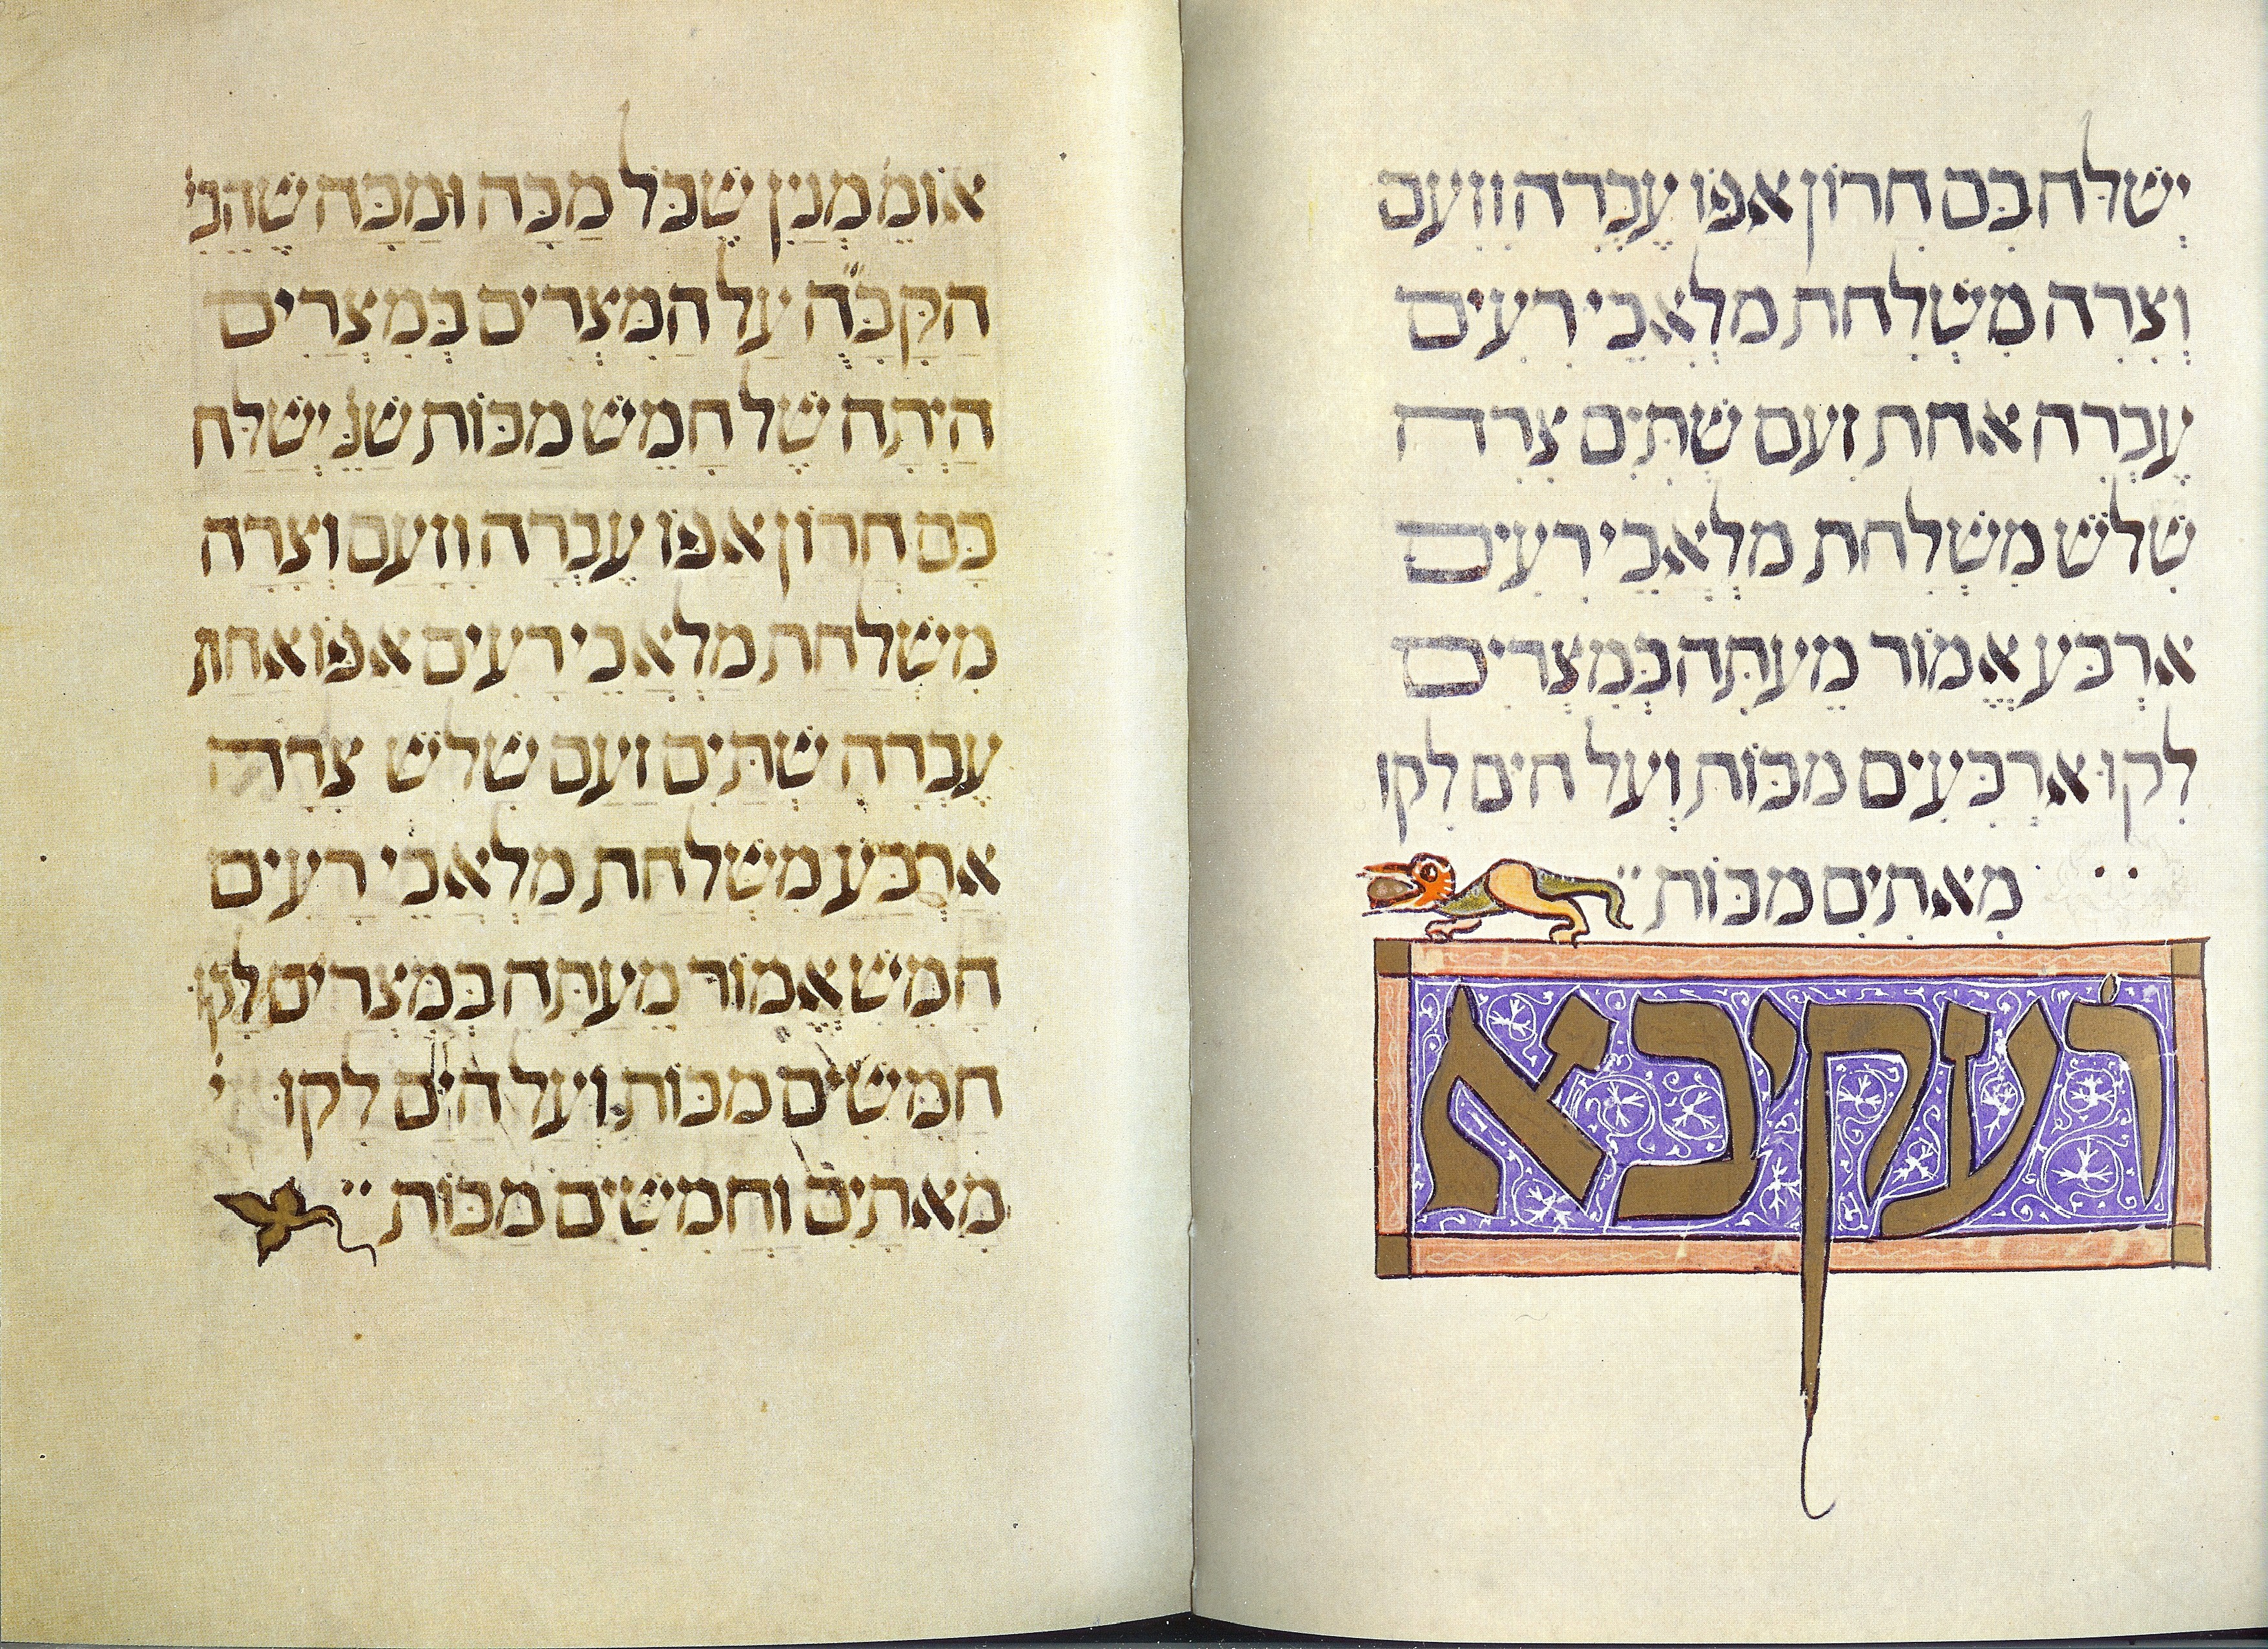 יְשַׁלַּח בָּם חֲרוֹן אַפּוֹ עֶבְרָה וָזַעַם
וְצָרָה מִשְׁלַחַת מַלְאֲכֵי רָעִים
עֶבְרָה אַחַת זַעַם שְׁתַּיִם צָרָה
שָׁלֹשׁ מִשְׁלַחַת מַלְאֲכֵי רָעִים
אַרְבַּע אֱמוֹר מֵעַתָּה בְּמִצְרַיִם
לָקוּ אַרְבָּעִים מַכּוֹת וְעַל הַיָּם לָקוּ
מָאתַיִם מַכּוֹת
ר֗ עקיבא
אוֹמֵ֗ מְנַיִן שֶׁכָּל מַכָּה וּמַכָּה שֶׁהֵבִ֗י
הַקָּבָּ֞ה עַל הַמִּצְרִים בְּמִצְרַיִם
הָיְתָה שֶׁל חָמֵשׁ מַכּוֹת שֶׁנֶּ֗ יְשַׁלַּח
בָּם חֲרוֹן אַפּוֹ עֶבְרָה וָזַעַם וְצָרָה
מִשְׁלַחַת מַלְאֲכֵי רָעִים אַפּוֹ אַחַת
עֶבְרָה שְׁתַּיִם זַעַם שָׁלֹשׁ צָרָה
אַרְבַּע מִשְׁלַחַת מַלְאֲכֵי רָעִים
חָמֵשׁ אֱמוֹר מֵעַתָּה בְּמִצְרַיִם לָקוּ
חֲמִשִּׁים מַכּוֹת וְעַל הַיָּם לָקוּ
מָאתַיִם וַחֲמִשִּׁים מַכּוֹת